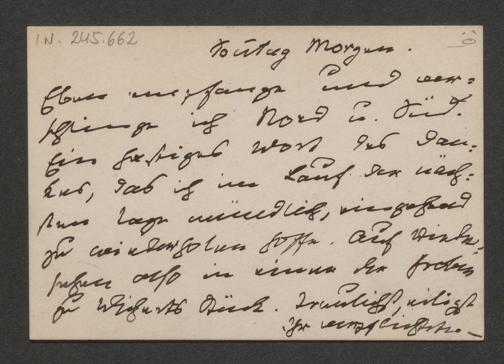 I.N. 245.662
Sonntag Morgen.
Eben empfange und ver=
schlinge ich Nord u. Süd.
Ein hastiges Wort des Dan-
kes, das ich im Lauf der näch-
sten Tage mündlich, eingehend
zu wiederholen hoffe. Auf Wieder-
sehen also in einer der ersten
zu Wicherts Stück. Treulichst, eiligst
Ihr